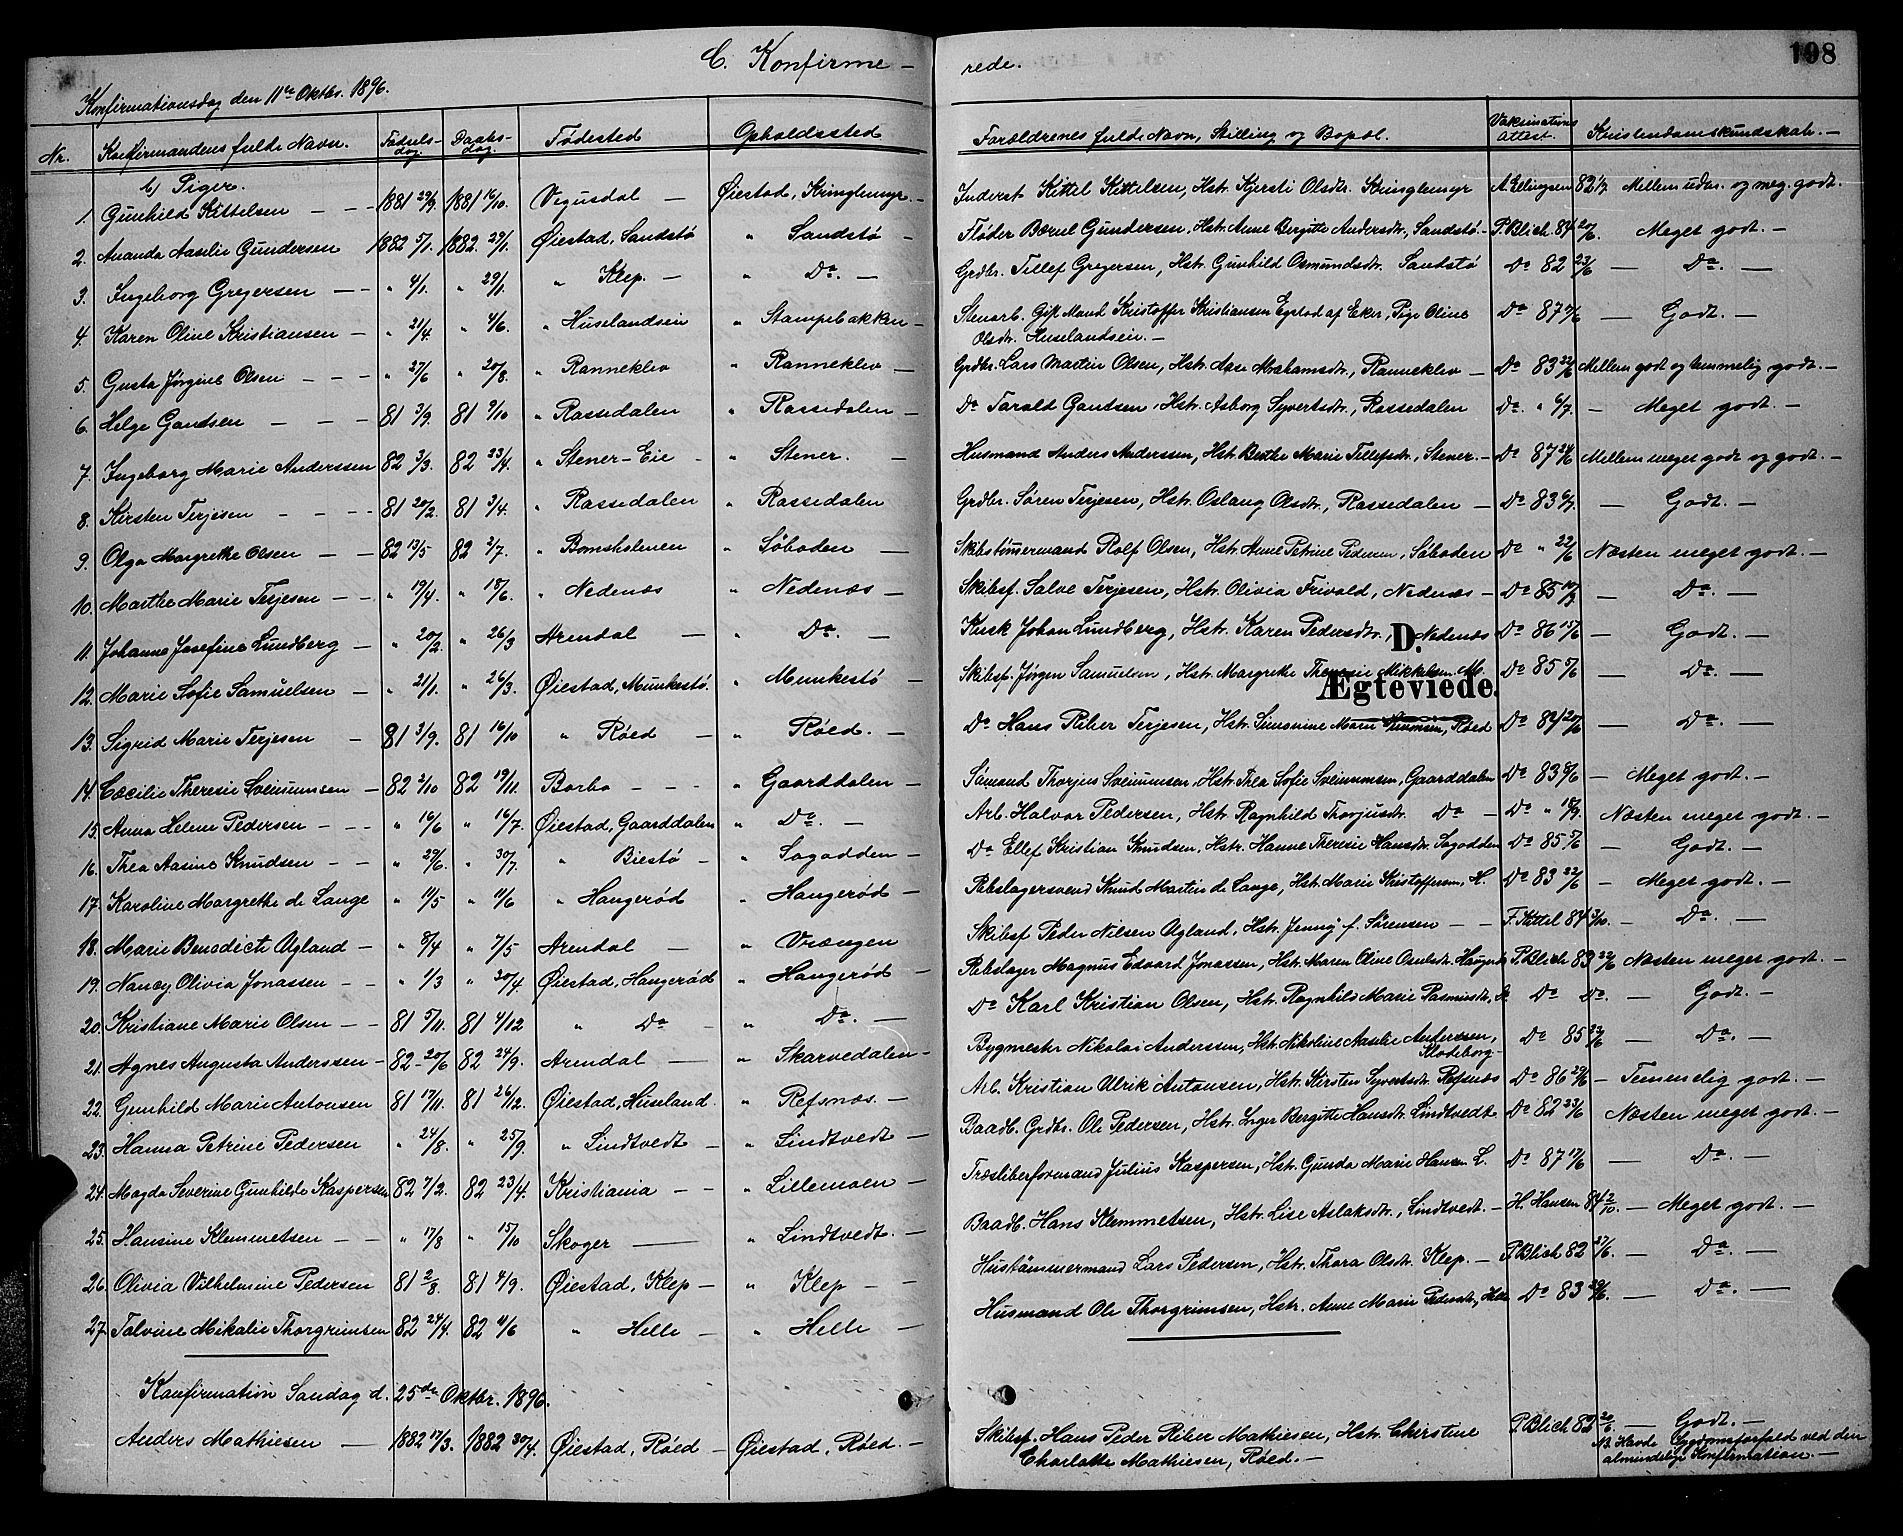 C. Konfirme- rede.
198
Konfirmationsdag den 11te Oktbr. 1896.
Nr. Konfirmandens fulde Navn. Fødsels-dag. Daabs-dag. Fødested Opholdssted Forældrenes fulde Navn, Stilling og Bopæl. Vakcinations Attest. Kristendomskundskab. -
b) Piger.
1. Gunhild Kittelsen - - - 1881 29/9. 1881 16/10. Vegusdal - Øiestad, Kringlemyr. - Inderst Kittel Kittelsen, Hstr. Kjersti Olsdtr. Kringlemyr A. Eelingsen 82 1/7. Mellem udm. og meg. godt.
2. Ananda Aaselie Gundersen 1882 5/1. 1882 29/1. Øiestad, Sandstø " Sandstø - Fløder Bærul Gundersen, Hstr. Anne Birgitte Andersdtr., Sandstø. - P. Blich 84 20/6. Meget godt. -
3. Ingeborg Gregersen - - " 4/1. " 29/1. " Klep. - " Do. - Grdbr. Tellef Gregersen, Hstr. Gunhild Osmundsdtr. Sandstø Do 82 23/6 - Do. -
4. Karen Oline Kristiansen - " 21/4. " 4/6. " Huselandseie " Stampebakken - Stenarb. Gift Mand Kristoffer Kristiansen Egelod af Eker, Pige Oline Do 87 - Godt. -
Olsdtr. Huselandseie. -
5. Gusta Jørgine Olsen - - - " 27/6 " 20/8. " Ranneklev " Ranneklev - Grdbr. Lars Martin Olsen, Hstr. Aase Abrahamsdtr., Ranneklev - Do 83 22/6 Mellem godt og temmelig godt. -
6. Helge Gandsen - - - 81 3/9. 81 9/10 " Rassedalen " Rassedalen - Do Tarald Gandsen, Hstr. Asborg Syvertsdtr., Rassedalen Do. " 6/7. - Meget godt. -
7. Ingeborg Marie Anderssen 82 3/3. 82 23/4. " Stener-Eie - " Stener. - Husmand Anders Anderssen, Hstr. Berthe Marie Tellefsdtr., Stener. - Do 87 24/6 Mellem meget godt og godt. -
8. Kirsten Terjesen - - - - 81 20/2. 81 3/4. " Rassedalen " Rassedalen Grdbr. Søren Terjesen, Hstr. Oslaug Olsdtr., Rassedalen - Do 83 6/7. - Godt. -
9. Olga Margrethe Olsen - - 82 13/5 82 2/7. " Bomsholmen " Søboden - Skibstømermand Rolf Olsen, Hstr. Anne Petrine Pedersen, Søboden Do " 22/6 Næsten meget godt. -
10. Marthe Marie Terjesen - - " 19/4. " 18/6. " Nedenæs - " Nedenæs - Skibsf. Salve Terjesen, Hstr. Olivia Frivold, Nedenæs - Do 85 - Do. -
11. Johanne Josefine Lundberg - " 20/2. " 26/3 Arendal - " Do. - Kusk Johan Lundberg, Hstr. Karen Pedersdtr., Nedenæs Do 86 15/6 - Godt. -
D.
12. Marie Sofie Samuelsen - " 21/1. " 26/3. Øiestad, Munkestø. " Munkestø - Skibsf. Jørgen Samuelsen, Hstr. Margrethe Theresie Mikkelsen M. Do 85 5/6 - Do. -
Ægteviede.
13. Sigrid Marie Terjesen - 81 3/9. 81 16/10 " Røed - " Røed. - Do Hans Riber Terjesen, Hstr. Simonine Marie Simonsen, Røed Do 84 20/6 - Do. -
14. Cæcilie Theresie Sveinumsen - 82 2/10 82 19/11. Barbo - - - " Gaarddalen - Sømand Thorjus Sveinumsen, Hstr. Thea Sofie Sveinumsen, Gaarddalen Do 83 8/6 - Meget godt. -
15. Anna Helene Pedersen - - - " 16/6 " 16/7. Øiestad, Gaarddalen " Do. - Arb. Halvor Pedersen, Hstr. Ragnhild Thorjusdtr. Do - Do " 18/9. Næsten meget godt. -
16. Thea Aasine Knudsen - - " 29/6. " 30/7. " Biestø - " Sagodden - Do Ellef Kristian Knudsen, Hstr. Hanne Theresie Hansdtr. Sagodden Do 85 5/6 - Godt. -
17. Karoline Margrethe de Lange " 11/5 " 11/6 " Hangerød " Hangerød - Rebslagersvend Knud Martin de Lange, Hstr. Marie Kristoffersen, H. Do 83 22/6 - Meget godt. -
18. Marie Benedicte Agland - " 8/4 " 7/5 Arendal - " Vrængen Skibsf. Peder Nilsen Agland, Hstr. Jenny f. Sørensen - - F. Kittel 84 3/10. - Do. -
19. Nancy Olivia Jonassen - - " 1/3 " 20/4 Øiestad, Hangerød " Hangerød - Rebslager Magnus Edvard Jonassen, Hstr. Maren Oline Osuldsdtr. Hangerød P. Blich 83 22/6 Næsten meget godt. -
20. Kristiane Marie Olsen - - 81 5/11. 81 4/12 " Do - " Do. - Do Karl Kristian Olsen, Hstr. Ragnhild Marie Rasmusdtr. Do Do. - Godt. -
21. Agnes Augusta Anderssen - 82 20/6 82 24/9. Arendal - " Skarvedalen - Bygmester Nikolai Anderssen, Hstr. Nikoline Aaselie Anderssen, Do 85 23/6 - Do. -
Klodeborg -
22. Gunhild Marie Antonsen 81 17/11. 81 26/12. Øiestad, Huseland. " Refsnæs. - Arb. Kristian Ulrik Antonsen, Hstr. Kirsten Syvertsdtr. Refsnæs Do 86 29/6 - Temmelig godt. -
23. Hanna Petrine Pedersen " 24/8. " 25/9 " Lindtvedt - " Lindtvedt - Baadb. Grdbr. Ole Pedersen, Hstr. Inger Bergitte Hansdtr. Lindtvedt Do 82 23/6 Næsten meget godt. -
24. Magda Severine Gunhilde Kaspersen 82 7/2. 82 23/4. Kristiania - - " Lillemoen - Træsliberformand Julius Kaspersen, Hstr. Gunda Marie Hansen L. Do 87 17/6 - Do. -
25. Hansine Klemmetsen - - " 17/8 " 15/10 Skoger - " Lindtvedt. - Baadb. Hans Klemmetsen, Hstr. Lise Aslaksdtr., Lindtvedt. - H. Hansen 84 2/10. - Meget godt. -
26. Olivia Vilhelmine Pedersen 81 2/8. 81 4/9. Øiestad, Klep - " Klep - - Hustømmermand Lars Pedersen, Hstr. Thora Olsdtr. Klep. - P. Blich 82 27/6. - Do. -
27. Talvine Mikalie Thorgrimsen 82 24/4. 82 11/6 " Helle - " Helle - Husmand Ole Thorgrimsen, Hstr. Anne Marie Pedersdtr., Helle Do 83 20/6. - Do. -
Konfirmation Søndag d. 25de Oktbr. 1896.
Anders Mathiesen - 1882 17/3. 1882 30/4. Øiestad, Røed - Øiestad, Røed. - Skibsf. Hans Peder Riber Mathiesen, Hstr. Chirstine P. Blich 82 20/6. - Godt. -
Charlotte Mathiesen, Røed. - NB. Havde Sygdomsforfald ved den
almindelige Konfirmation. -